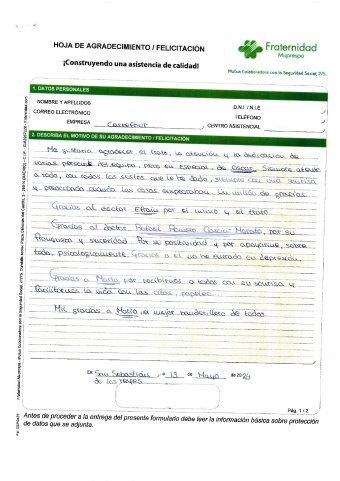 HOJA DE AGRADECIMIENTO / FELICITACIÓN
¡Construyendo una asistencia de calidad!
Fraternidad
Muprespa
Mutua Colaboradora con la Seguridad Social, 275
1. DATOS PERSONALES
NOMBRE Y APELLIDOS
D.N.I. / N.I.E.
CORREO ELECTRÓNICO
TELÉFONO
EMPRESA Carrefour
CENTRO ASISTENCIAL
2. DESCRIBA EL MOTIVO DE SU AGRADECIMIENTO / FELICITACIÓN
Me gustaría agradecer el trato, la atención y la dedicación de
varias personas del equipo, pero en especial de Oscar. Siempre atento
a todo, con todos los sustos que le he dado, siempre con una sonrisa
y preocupado cuando las cosas empeoraban. Un millón de gracias.
Gracias al doctor Efraín por el cariño y el trato.
Gracias al doctor Rafael García Morató, por su
franqueza y sinceridad. Por su positividad y por apoyarme, sobre
todo, psicológicamente. Gracias a él no he entrado en depresión.
Gracias a Marta por recibirnos a todos con su sonrisa y
facilitarnos la vida con las citas, papeleo.
Mil gracias a Mario, el mejor banderillero de todos.
De San Sebastián, a 13 de Mayo de 2024
de los reyes
Pág. 1 / 2
Antes de proceder a la entrega del presente formulario debe leer la información básica sobre protección
de datos que se adjunta.